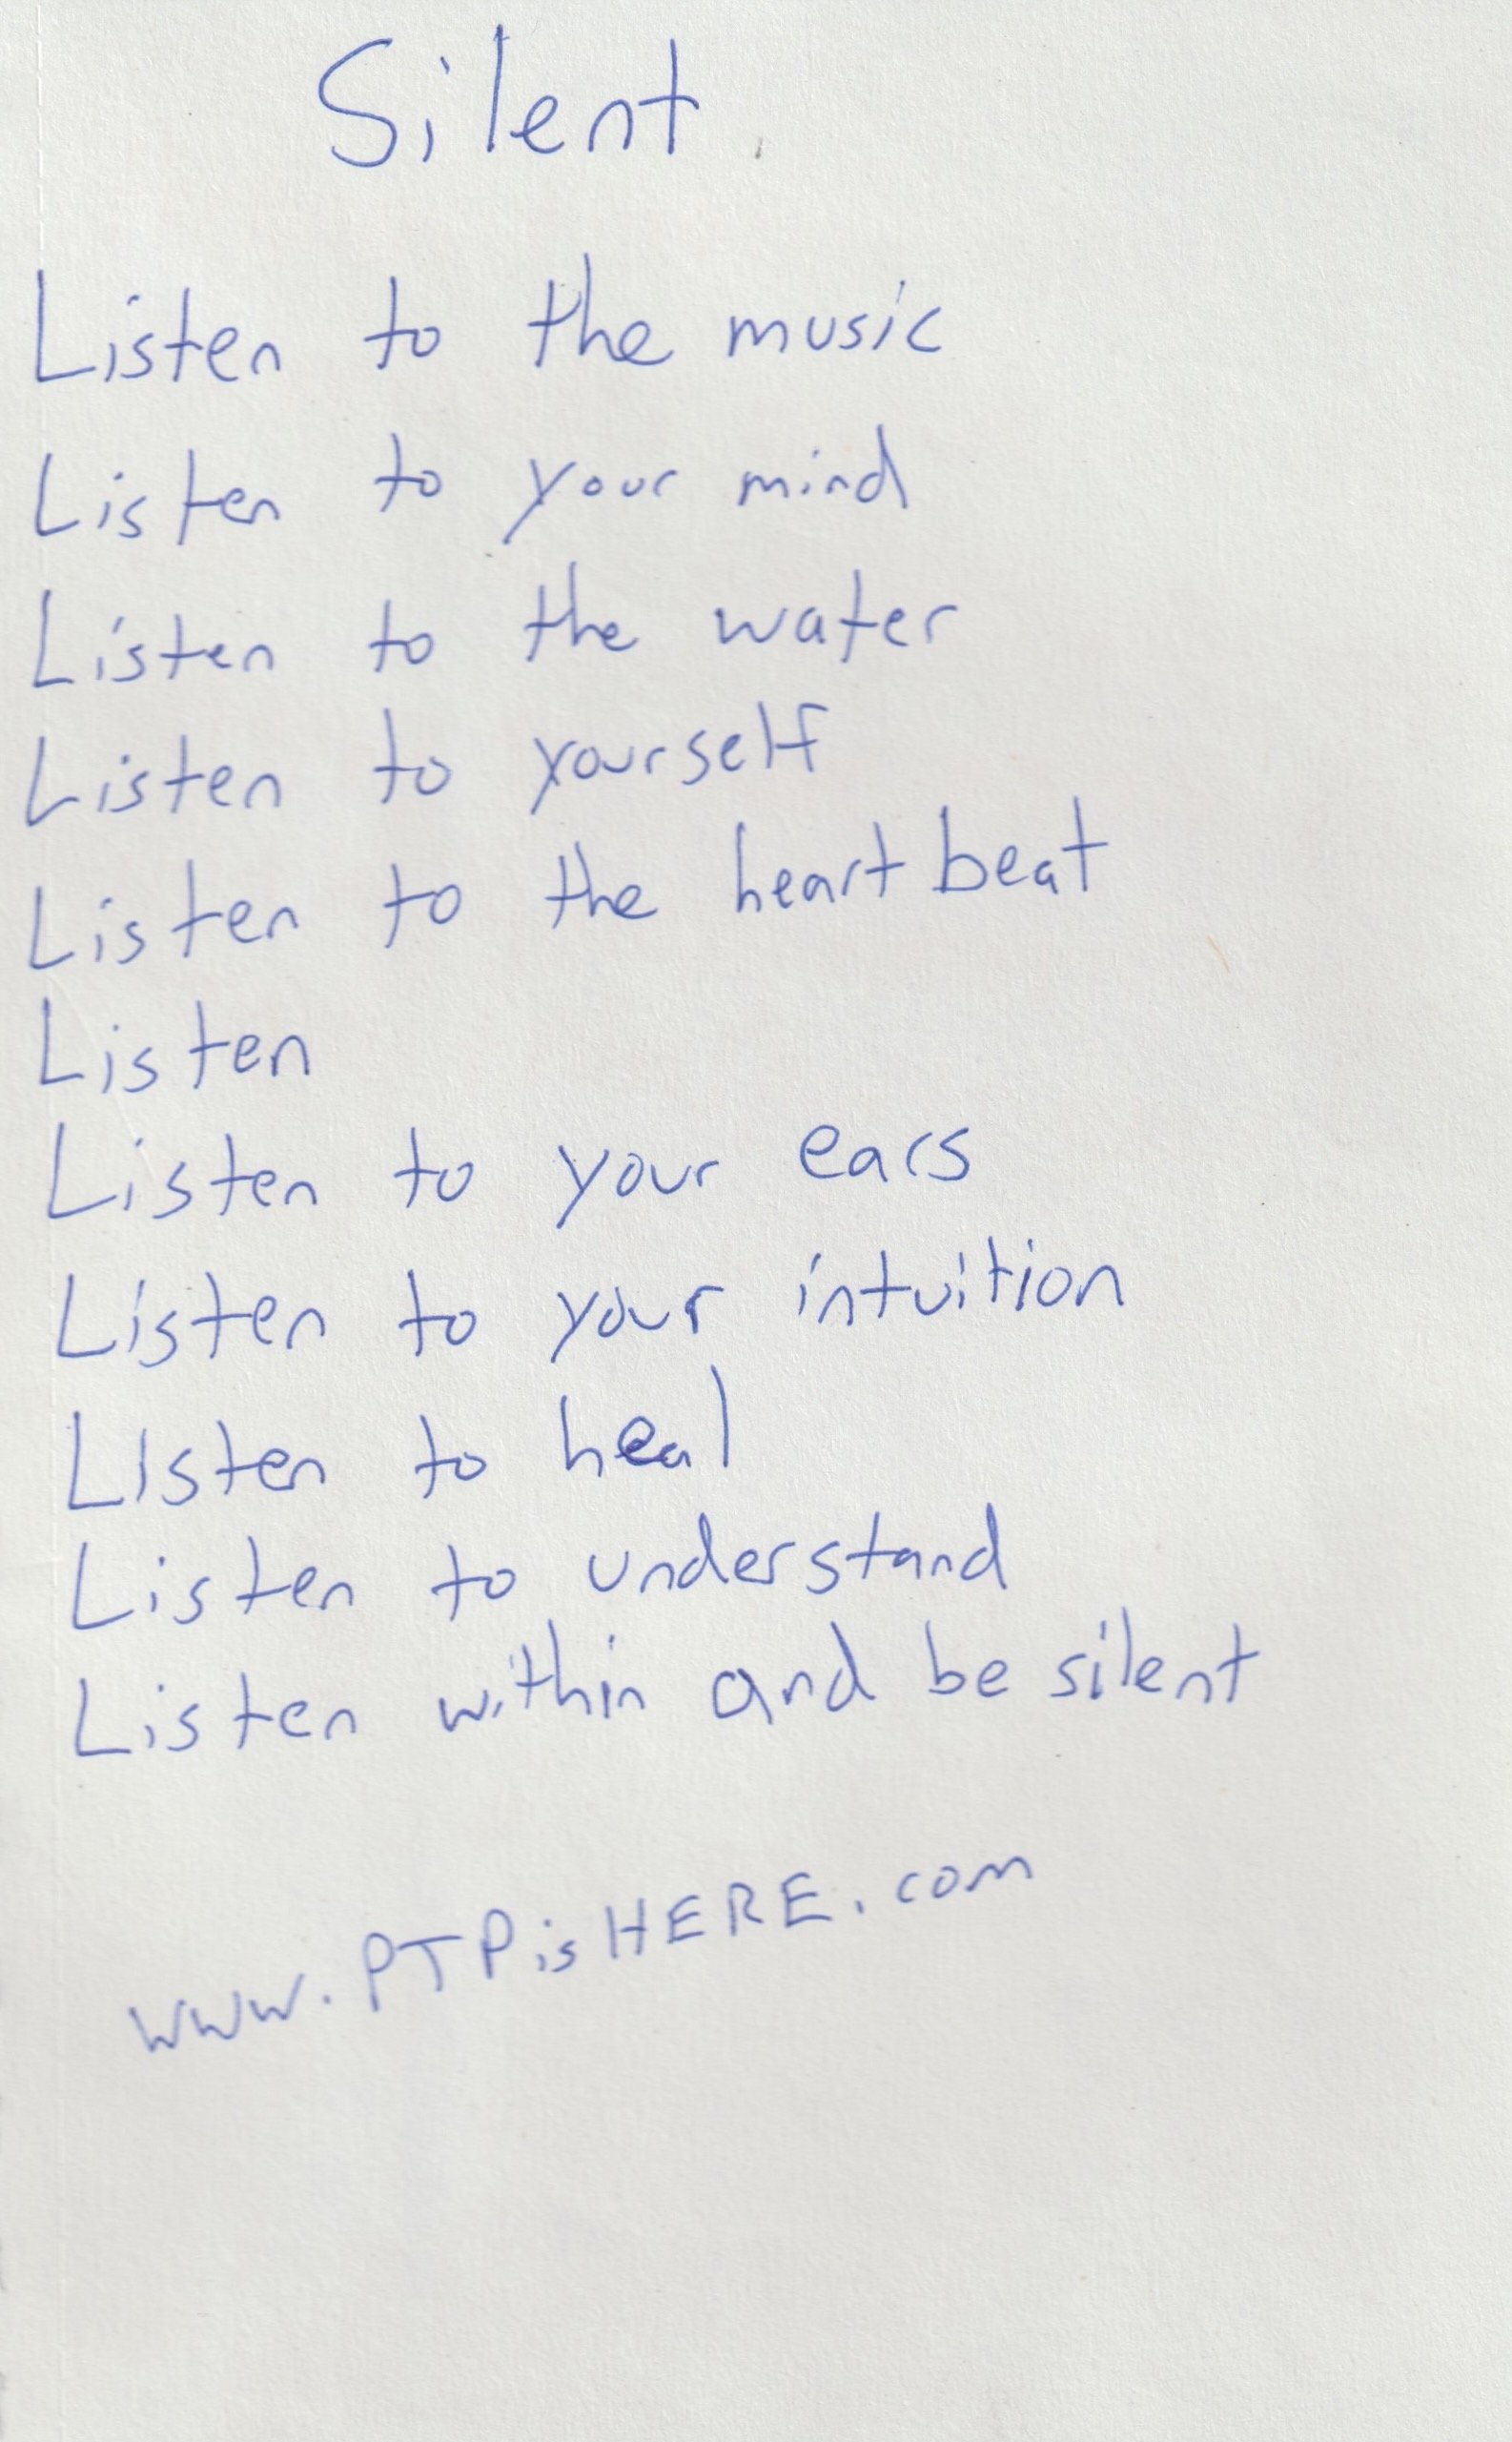 Silent
Listen to the music
Listen to your mind
Listen to the water
Listen to yourself
Listen to the heart beat
Listen
Listen to your ears
Listen to your intuition
Listen to heal
Listen to understand
Listen within and be silent
www.PTPisHERE.com